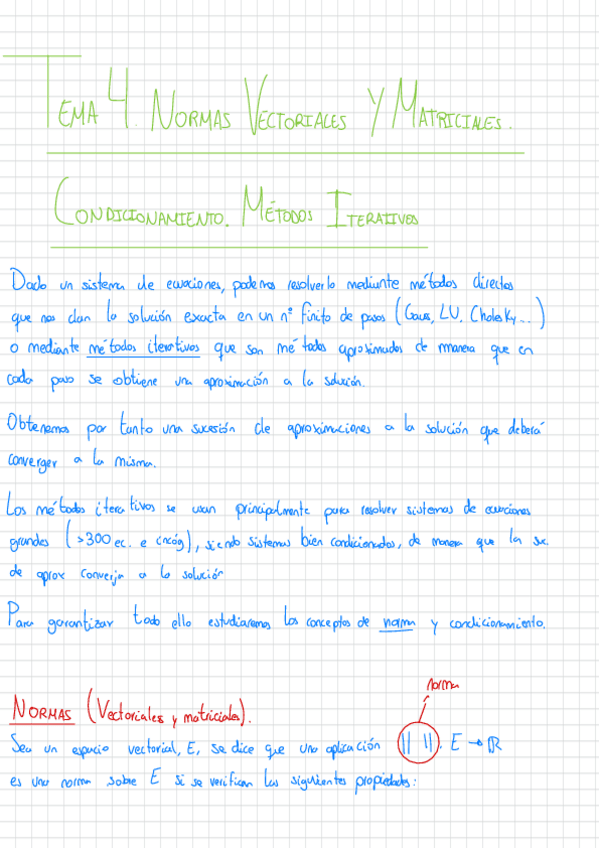 TEMA 4. NORMAS VECTORIALES Y MATRICIALES.
CONDICIONAMIENTO. MÉTODOS ITERATIVOS
Dado un sistema de ecuaciones, podemos resolverlo mediante métodos directos
que nos dan la solución exacta en un nº finito de pasos (Gauss, LU, Cholesky...)
o mediante métodos iterativos que son métodos aproximados de manera que en
cada paso se obtiene una aproximación a la solución.
Obtenemos por tanto una sucesión de aproximaciones a la solución que deberá
converger a la misma.
Los métodos iterativos se usan principalmente para resolver sistemas de ecuaciones
grandes (>300 ec. e incóg), siendo sistemas bien condicionados, de manera que la suc.
de aprox converja a la solución
Para garantizar todo ello estudiaremos los conceptos de norma y condicionamiento.
norma
NORMAS (Vectoriales y matriciales).
Sea un espacio vectorial, E, se dice que una aplicación || ||. E → ℝ
es una norma sobre E si se verifican las siguientes propiedades: